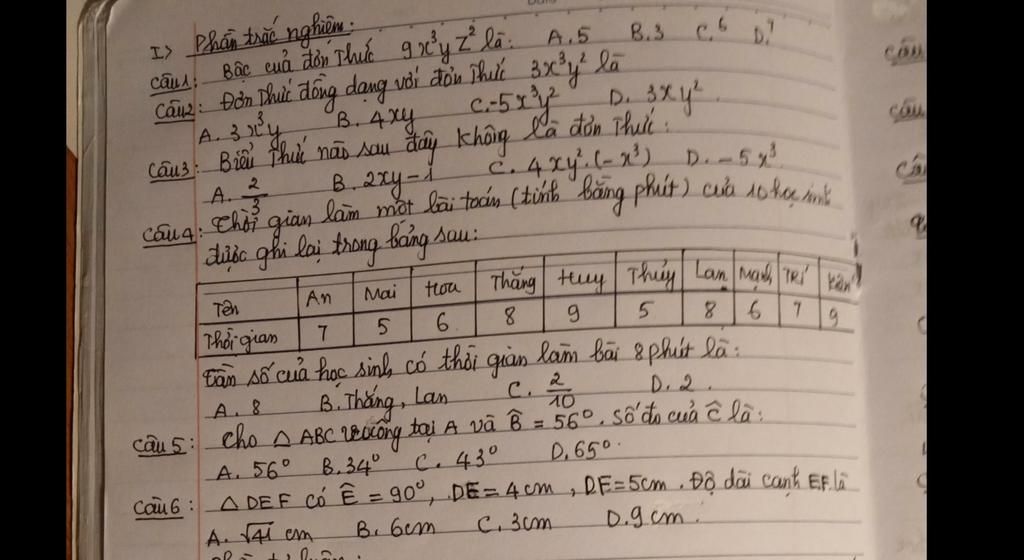 I> Phần trắc nghiệm:
Câu1: Bậc của đơn thức 9x³yz² là: A.5 B.3 C.6 D.7
Câu2: Đơn thức đồng dạng với đơn thức 3x³y² là
A. 3x³y B. 4xy C.-5x³y² D. 3xy².
Câu3: Biểu thức nào sau đây không là đơn thức:
A. 2/3 B. 2xy-1 C. 4xy².(-x³) D. -5x³
Câu4: Thời gian làm một bài toán (tính bằng phút) của 10 học sinh
được ghi lại trong bảng sau:
Tên An Mai Hoa Thắng Huy Thúy Lan Mạnh Trí Kiên
Thời gian 7 5 6 8 9 5 8 6 7 9
Tần số của học sinh có thời gian làm bài 8 phút là:
A. 8 B. Thắng, Lan C. 2/10 D. 2.
Câu 5: Cho △ ABC vuông tại A và B̂ = 56°. Số đo của Ĉ là:
A. 56° B. 34° C. 43° D. 65°.
Câu6: △ DEF có Ê = 90°, DE = 4cm, DF=5cm. Độ dài cạnh EF là
A. √41 cm B. 6cm C. 3cm D. 9cm.